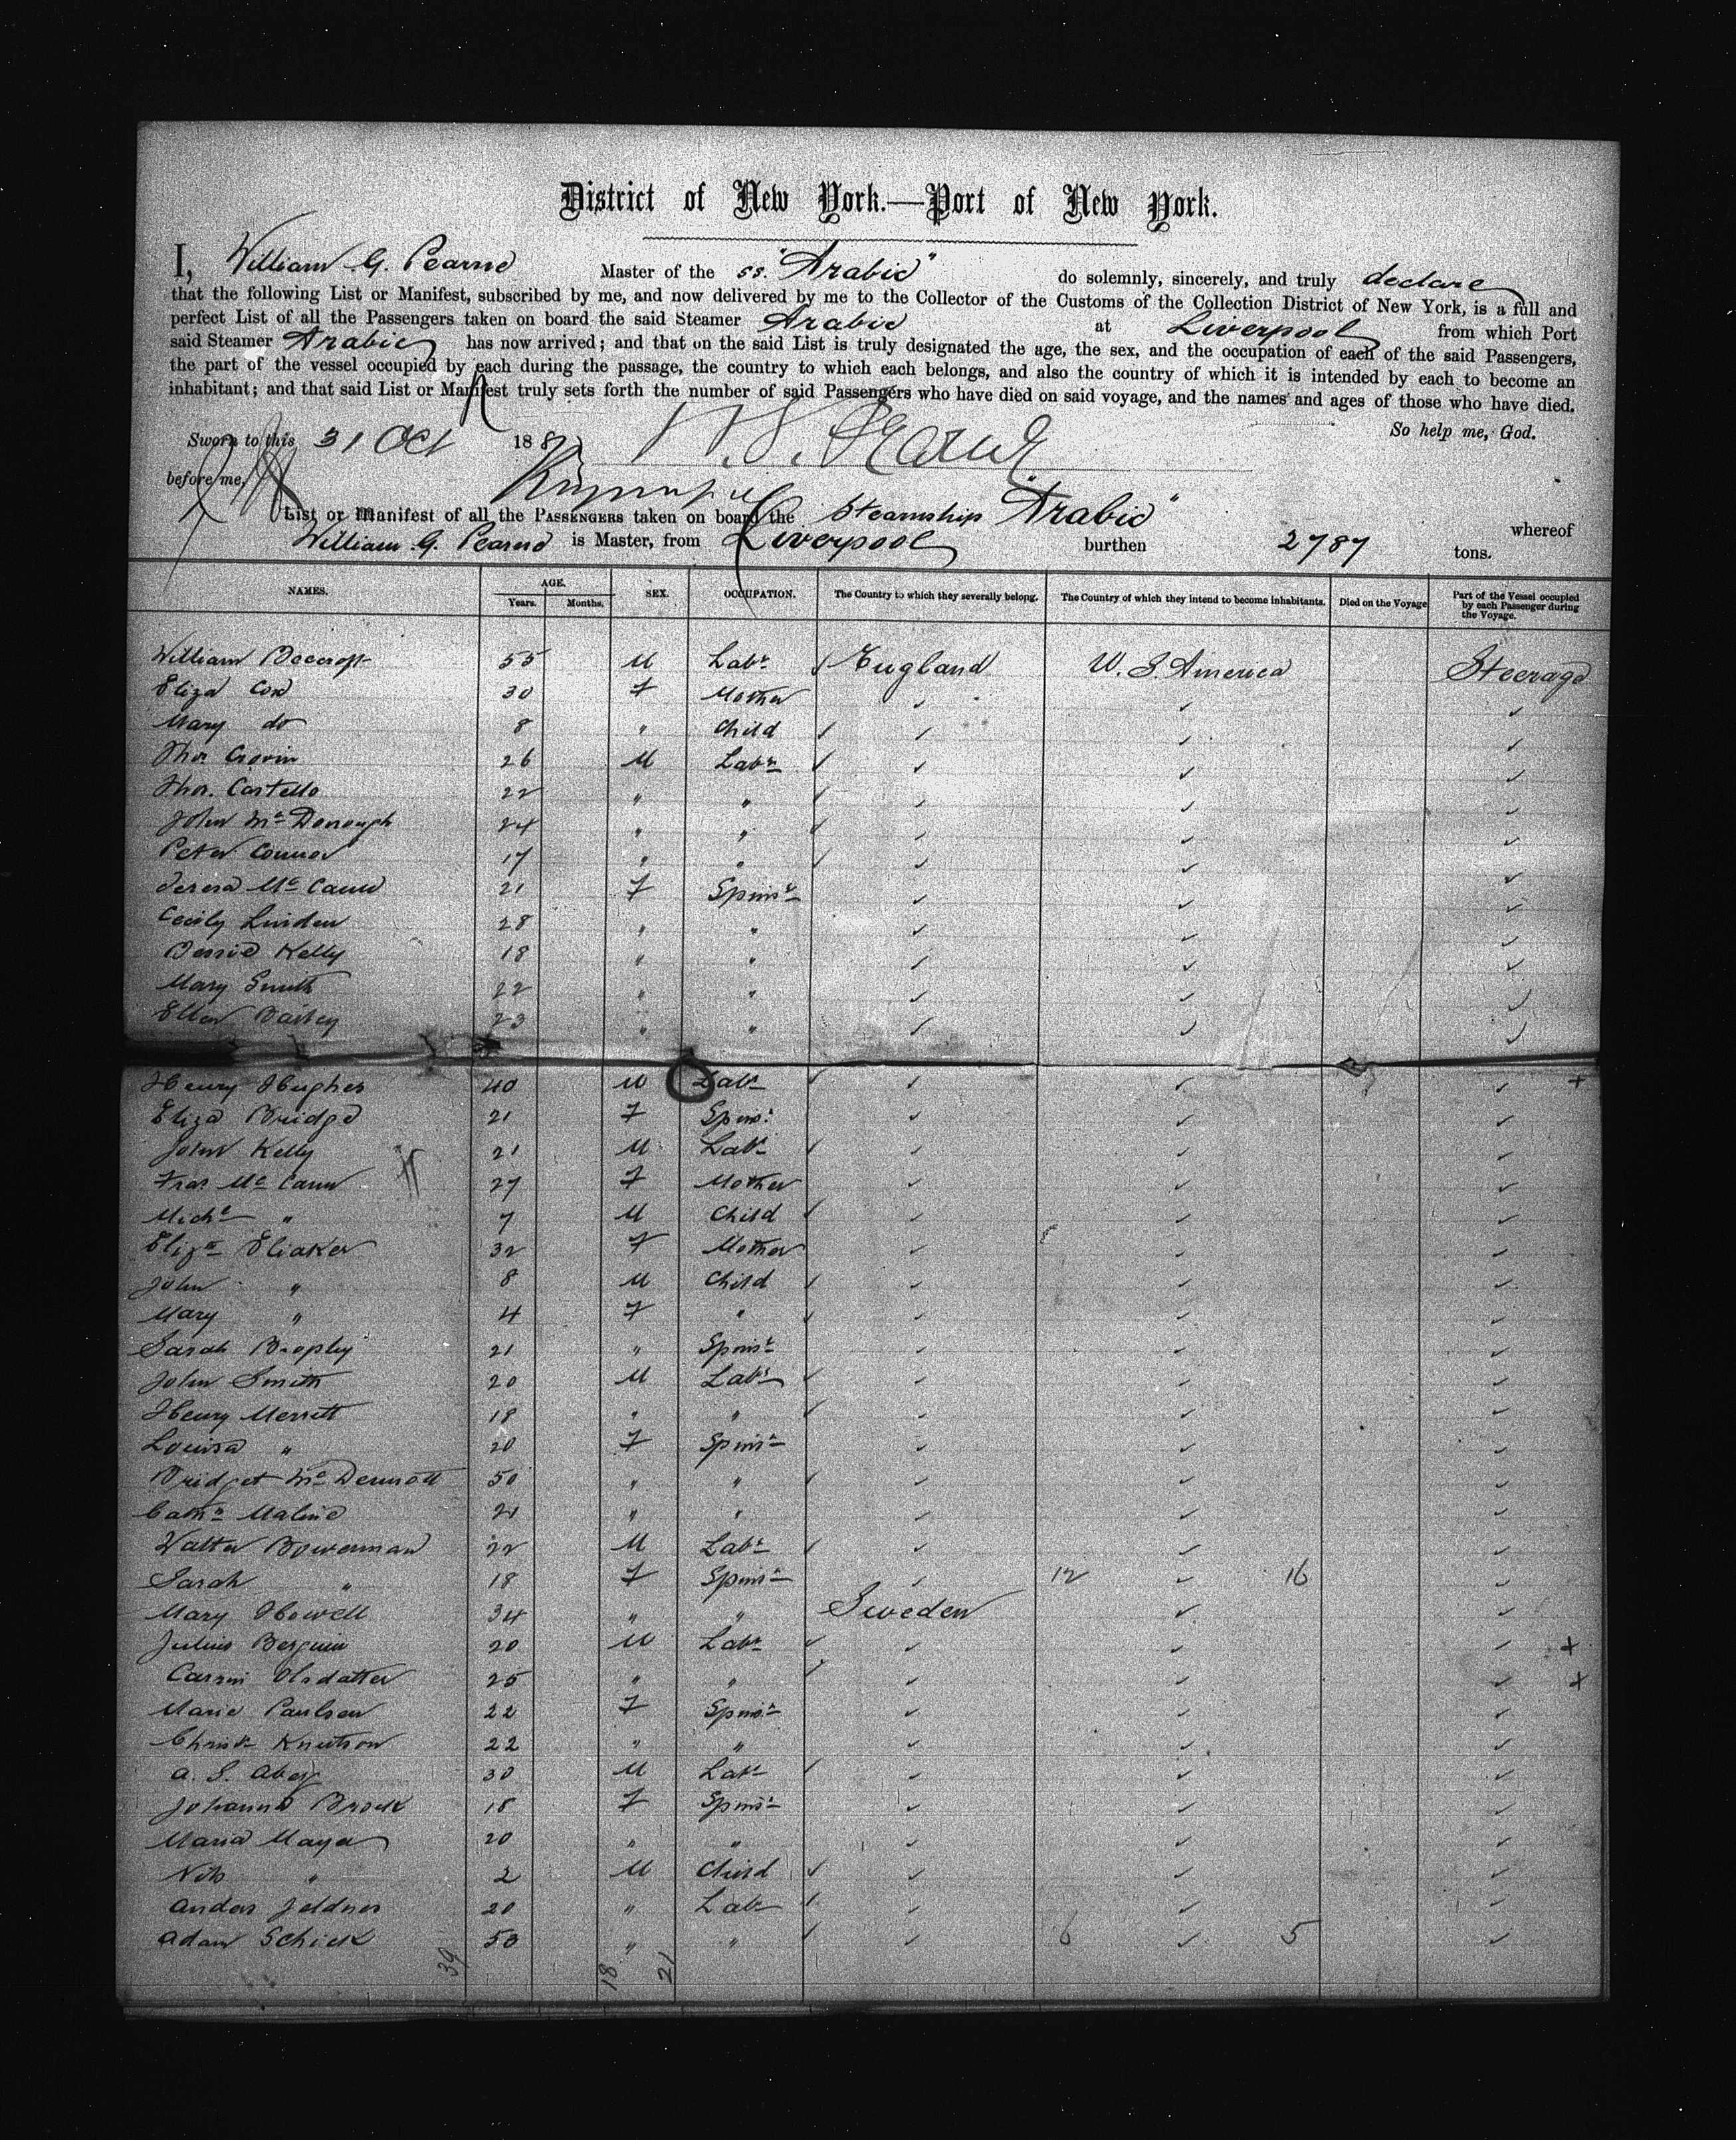 District of New York.—Port of New York.
I, William G. Pearne Master of the ss. "Arabic" do solemnly, sincerely, and truly declare
that the following List or Manifest, subscribed by me, and now delivered by me to the Collector of the Customs of the Collection District of New York, is a full and
perfect List of all the Passengers taken on board the said Steamer Arabic at Liverpool from which Port
said Steamer Arabic has now arrived; and that on the said List is truly designated the age, the sex, and the occupation of each of the said Passengers,
the part of the vessel occupied by each during the passage, the country to which each belongs, and also the country of which it is intended by each to become an
inhabitant; and that said List or Manifest truly sets forth the number of said Passengers who have died on said voyage, and the names and ages of those who have died.
So help me, God.
Sworn to this 31 Oct 188 W. G. Pearne
before me,
List or Manifest of all the PASSENGERS taken on board the Steamship "Arabic" whereof
William G. Pearne is Master, from Liverpool burthen 2787 tons.
NAMES. AGE. Years. Months. SEX. OCCUPATION. The Country to which they severally belong. The Country of which they intend to become inhabitants. Died on the Voyage Part of the Vessel occupied by each Passenger during the Voyage.
William Beecroft 55 M Labr England U. S. America Steerage
Eliza Cox 30 F Mother
Mary do 8 " Child
Thos Cronin 26 M Labr
Thos. Costello 22 " "
John Mc Donough 24 " "
Peter Connor 17 " "
Teresa Mc Cann 21 F Spinsr
Cecily Linden 28 " "
Bessie Kelly 18 " "
Mary Smith 22 " "
Ellen 23 " "
Henry Hughes 40 M Labr +
Eliza Bridge 21 F Spinsr
John Kelly 21 M Labr
Fras Mc Cann 27 F Mother
Michl " 7 M Child
Elizth Eliaker 32 F Mother
John " 8 M Child
Mary " 4 F "
Sarah Brophy 21 " Spinsr
John Smith 20 M Labr
Henry Merritt 18 " "
Louisa " 20 F Spinsr
Bridget Mc Dermott 50 " "
Cathn Malone 21 " "
Walter Bowerman 22 M Labr
Sarah " 18 F Spinsr 12 16
Mary Howell 34 " " Sweden
Julius Berguin 20 M Labr +
Carrin Olsdatter 25 " " +
Marie Paulsen 22 F Spinsr
Christn Knutson 22 " "
A. S. Aberg 30 M Labr
Johanna Brock 18 F Spinsr
Maria Maya 20 " "
Nils " 2 M Child
Anders 20 " Labr
Adam Schick 50 " " 6 5
39 18 21